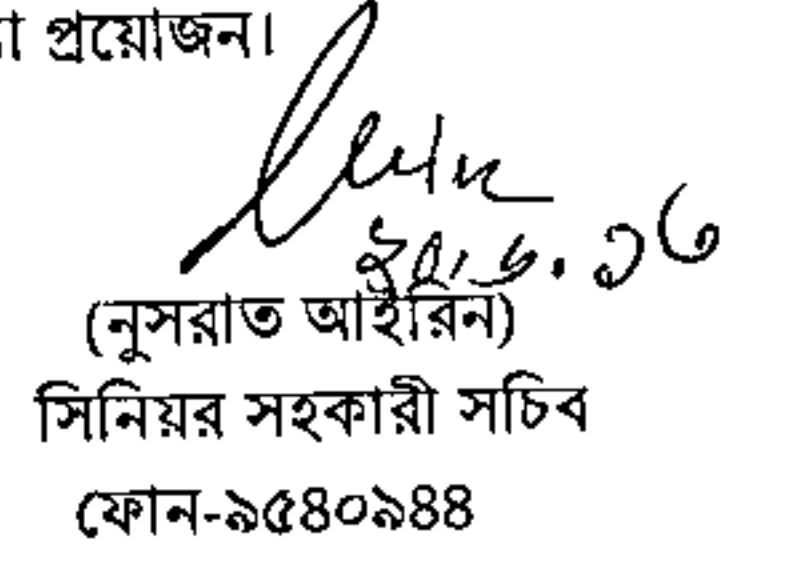 প্রয়োজন।
২০.৬.১৬
(নুসরাত আইরিন)
সিনিয়র সহকারী সচিব
ফোন-৯৫৪০৯৪৪